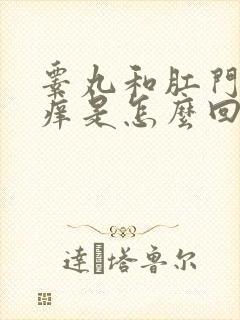 睾丸和肛門
痒是怎麼回
達·塔鲁尔